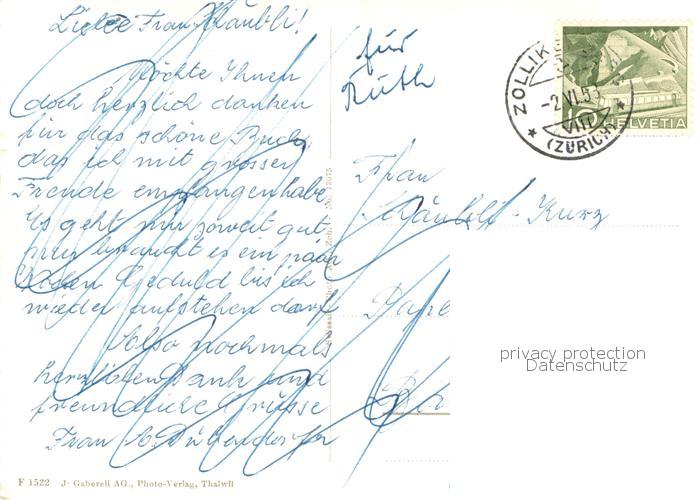 Liebe Frau Kräubli!
möchte Ihnen
doch herzlich danken
für das schöne Buch,
das ich mit grosser
Freude empfangen habe.
Es geht mir soweit gut
nur braucht es ein paar
Wochen Geduld bis ich
wieder aufstehen darf.
Also nochmals
herzlichen Dank und
freundliche Grüsse
Frau A. Dübendorfer
für
Ruth
ZOLLIK
-2.VI.53
VIII
(ZÜRICH)
HELVETIA
Frau
-Kurz
privacy protection
Datenschutz
F 1522 J. Gaberell AG., Photo-Verlag, Thalwil